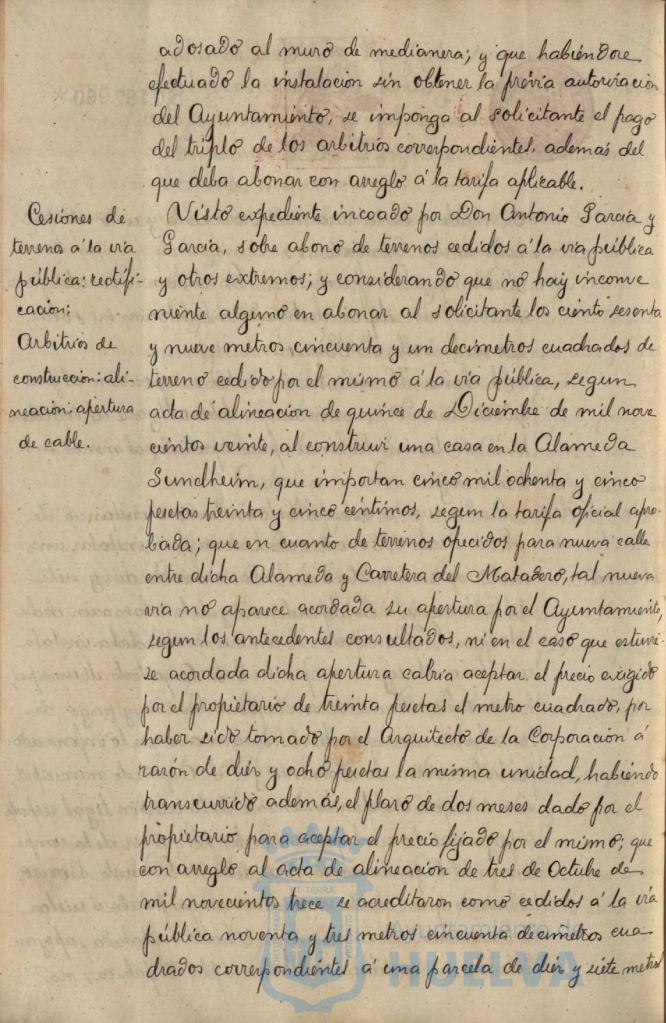 adosado al muro de medianera; y que habiéndose
efectuado la instalacion sin obtener la prévia autorización
del Ayuntamiento, se imponga al solicitante el pago
del triplo de los arbitrios correspondientes, ademas del
que deba abonar con arreglo á la tarifa aplicable.
Cesiones de
terrenos á la via
pública: rectifi-
cacion:
Arbitrios de
construccion: ali-
neación: apertura
de cable.
Visto expediente incoado por Don Antonio Garcia y
Garcia, sobre abono de terrenos cedidos á la via pública
y otros extremos; y considerando que no hay inconve
niente alguno en abonar al solicitante los ciento sesenta
y nueve metros cincuenta y un decimetros cuadrados de
terreno cedido por el mismo á la via pública, segun
acta de alineación de quince de Diciembre de mil nove
cientos veinte, al construir una casa en la Alameda
Sundheim, que importan cinco mil ochenta y cinco
pesetas treinta y cinco céntimos, segun la tarifa oficial apro-
bada; que en cuanto de terrenos ofrecidos para nueva calle
entre dicha Alameda y Carretera del Matadero, tal nueva
via no aparece acordada su apertura por el Ayuntamiento,
segun los antecedentes consultados, ni en el caso que estuvie-
se acordada dicha apertura cabria aceptar el precio exigido
por el propietario de treinta pesetas el metro cuadrado, por
haber sido tomado por el Arquitecto de la Corporación á
razón de diez y ocho pesetas la misma unidad, habiendo
transcurrido además, el plazo de dos meses dado por el
propietario para aceptar el precio fijado por el mismo; que
con arreglo al acta de alineación de tres de Octubre de
mil novecientos trece se acreditaron como cedidos á la via
pública noventa y tres metros cincuenta decimetros cua
drados correspondientes á una parcela de diez y siete metros
Ayuntamiento de
HUELVA